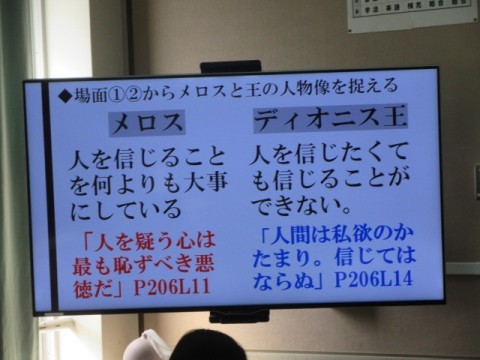 ◆場面①②からメロスと王の人物像を捉える
メロス
人を信じること
を何よりも大事
にしている
「人を疑う心は
最も恥ずべき悪
徳だ」P206L11
ディオニス王
人を信じたくて
も信じることが
できない。
「人間は私欲のか
たまり。信じては
ならぬ」P206L14